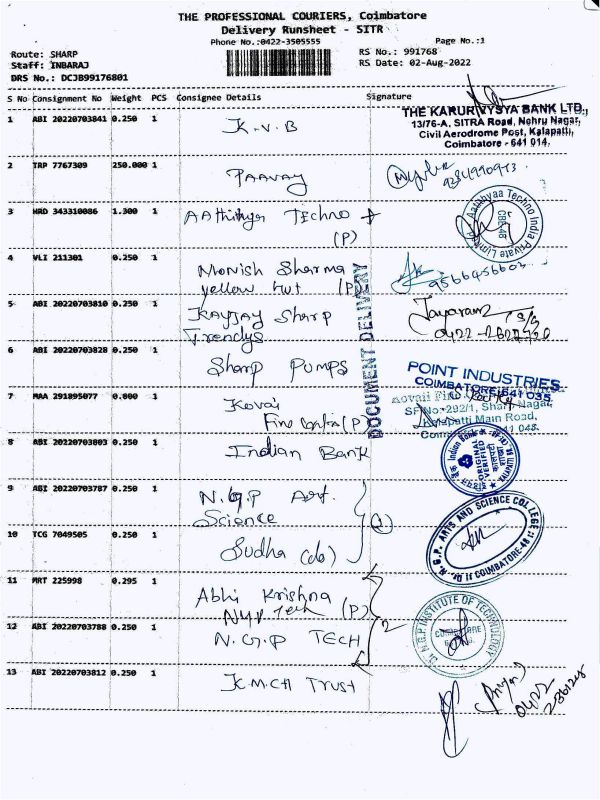 THE PROFESSIONAL COURIERS, Coimbatore
Delivery Runsheet - SITR
Phone No.:0422-3505555
Page No.:1
Route: SHARP
RS No.: 991768
Staff: INBARAJ
RS Date: 02-Aug-2022
DRS No.: DCJB99176801
S No Consignment No Weight PCS Consignee Details Signature
1 ABI 20220703841 0.250 1 K.V.B
THE KARUR VYSYA BANK LTD.,
13/76-A, SITRA Road, Nehru Nagar,
Civil Aerodrome Post, Kalapatti,
Coimbatore - 641 014.
2 TRP 7767309 250.000 1 PAAVAY
3 HRD 343310086 1.300 1 AAthithya Techno
(P)
Aatahyaa Techno India Private Limited
CBE-48
4 VLI 211301 0.250 1 Monish Sharma
yellow hut (P)
9566456603
5 ABI 20220703810 0.250 1 KAYJAY Sharp
Trendys
Jayaram
DOCUMENT DELIVERY
6 ABI 20220703828 0.250 1 Sharp PUMPS
POINT INDUSTRIES
COIMBATORE-641 035.
7 MAA 291895077 0.800 1 Kovai
Fine Centre (P)
Kovai Fine
SF No:292/1, Sharp Nagar,
Kalapatti Main Road,
Coimbatore-641 048.
8 ABI 20220703803 0.250 1 Indian Bank
Indian Bank
ORIGINAL
VERIFIED
9 ABI 20220703787 0.250 1 N.G.P Art.
Science
10 TCG 7049505 0.250 1 Sudha (do)
N.G.P. ARTS AND SCIENCE COLLEGE
COIMBATORE-48
11 MRT 225998 0.295 1 Abhi Krishna
NGP Tech (P)
2
12 ABI 20220703788 0.250 1 N.G.P TECH
Dr. N.G.P INSTITUTE OF TECHNOLOGY
COIMBATORE
13 ABI 20220703812 0.250 1 K.M.CH Trust
Priya
0422